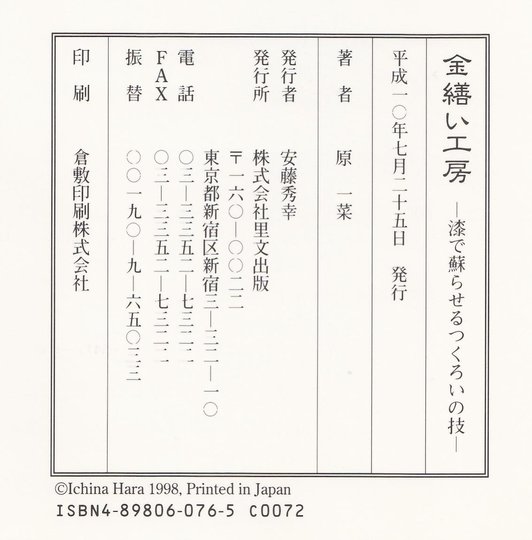 金繕い工房 ―漆で蘇らせるつくろいの技―
平成一〇年七月二十五日 発行
著者 原 一菜
発行者 安藤秀幸
発行所 株式会社里文出版
〒一六〇―〇〇二二
東京都新宿区新宿三―三二―一〇
電話 〇三―三三五二―七三二二
FAX 〇三―三三五二―七三二二
振替 〇〇一九〇―九―六五〇三三
印刷 倉敷印刷株式会社
©Ichina Hara 1998, Printed in Japan
ISBN4-89806-076-5 C0072